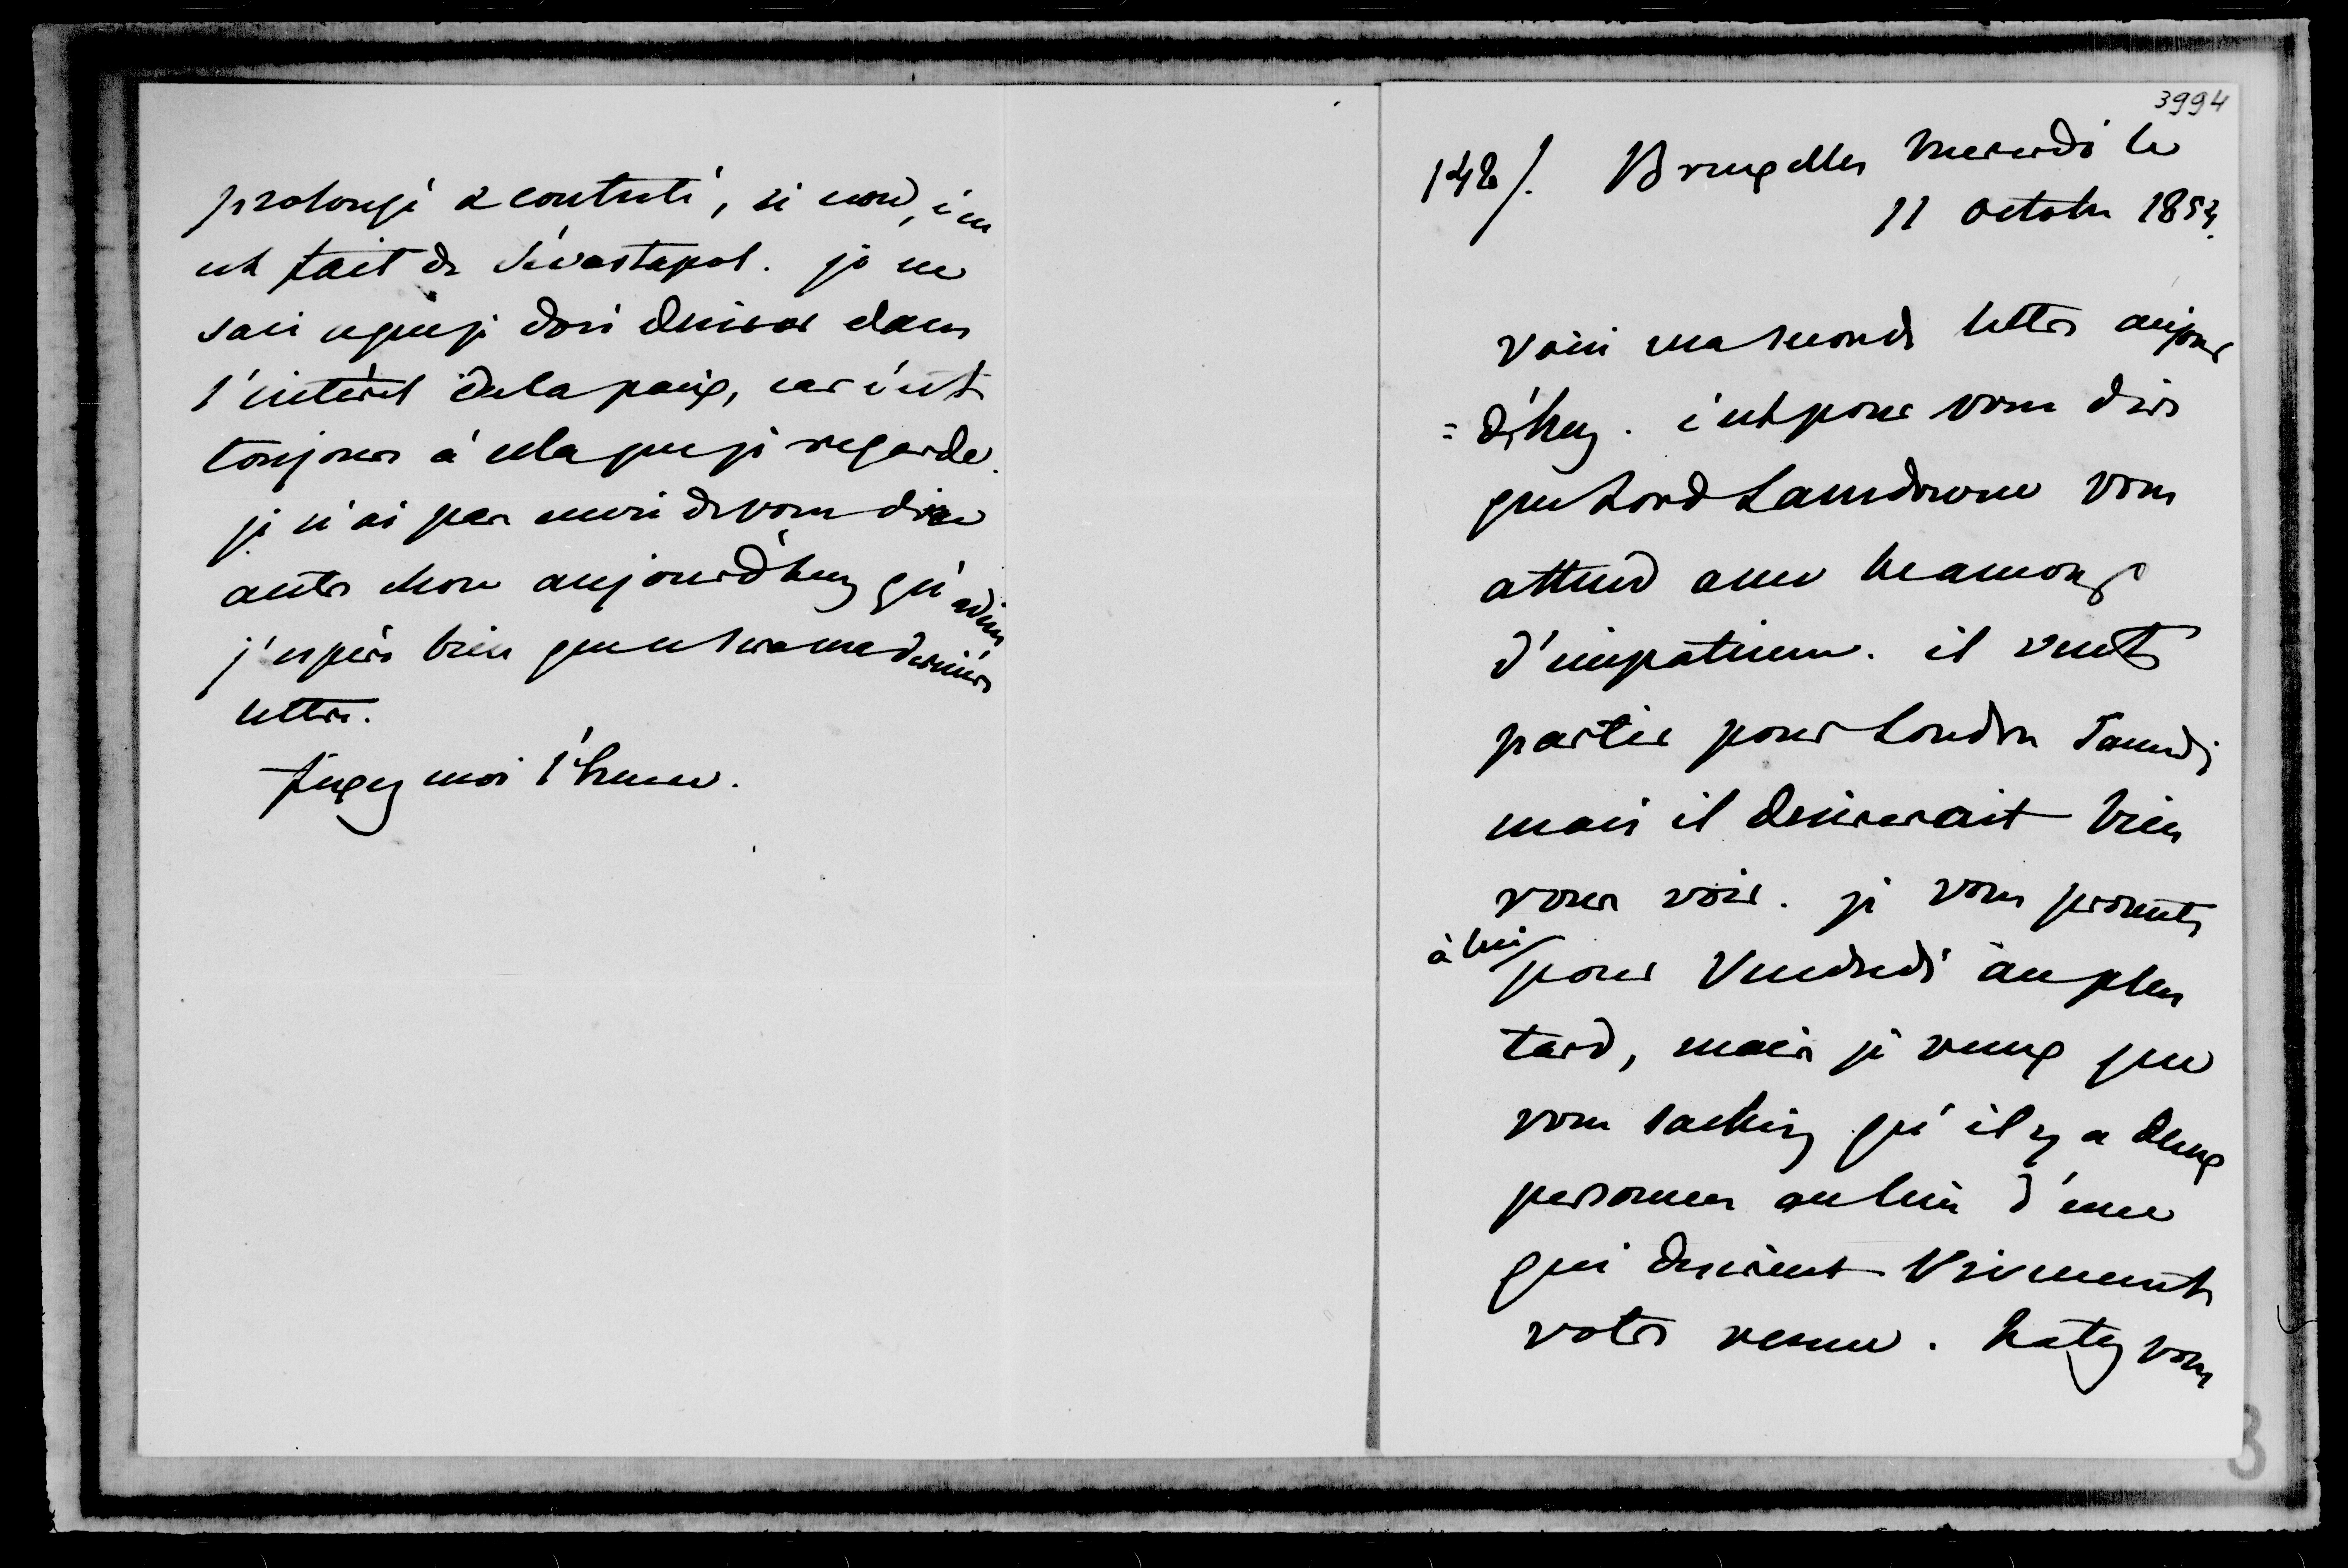 prolongé & contesté, si non, c'en
est fait de Sévastopol. je ne
sais ce que je dois desirer dans
l'intérêt de la paix, car c'est
toujours à cela que je regarde.
je n'ai pas envie de vous dire
autre chose aujourd'huy qu'adieu
j'espère bien que ce sera ma dernière
lettre.
fixez moi l'heure.
3994
142/. Bruxelles Mercredi le
11 octobre 1854.
voici ma seconde lettre aujour
=d'huy. c'est pour vous dire
que Lord Lansdowne vous
attend avec beaucoup
d'impatience. il veut
partir pour Londres Samedi
mais il desirerait bien
vous voir. je vous promets
à lui
pour Vendredi au plus
tard, mais je veux que
vous sachiez qu'il y a deux
personnes au lieu d'une
qui desirent vivement
votre venue. hatez vous
3